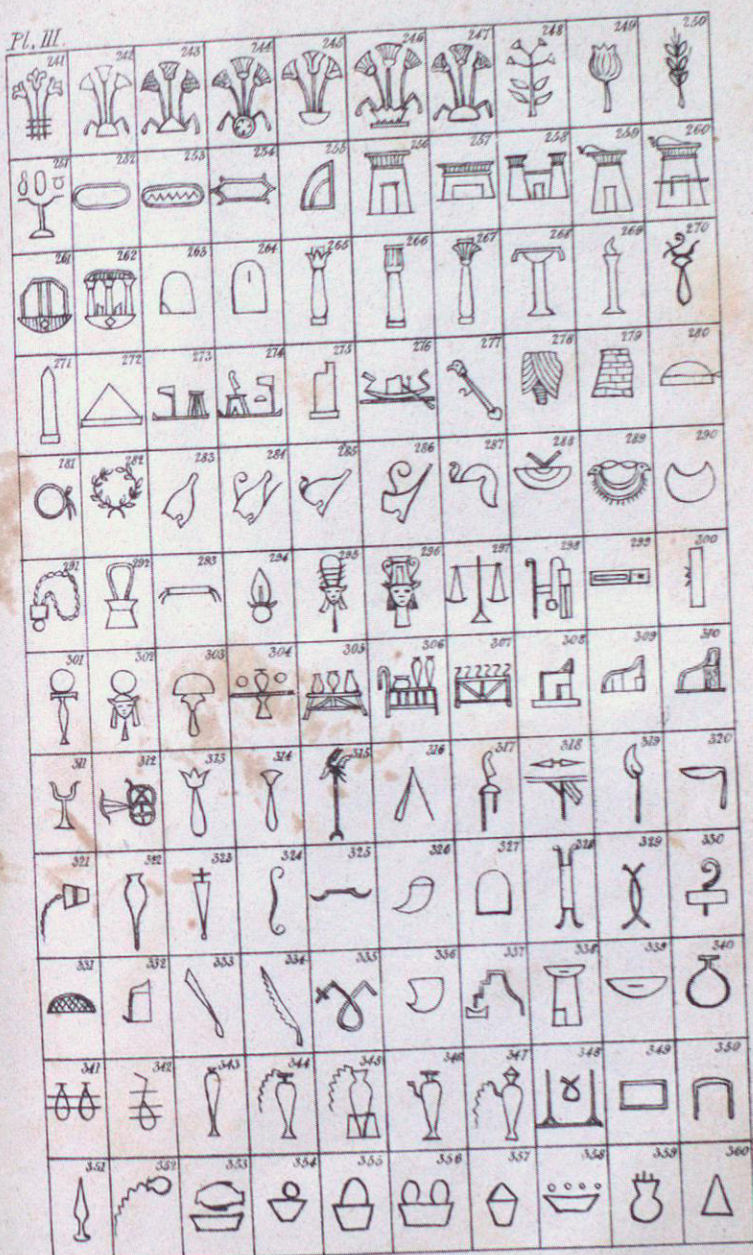 Pl. III.
241 242 243 244 245 246 247 248 249 250
251 252 253 254 255 256 257 258 259 260
261 262 263 264 265 266 267 268 269 270
271 272 273 274 275 276 277 278 279 280
281 282 283 284 285 286 287 288 289 290
291 292 293 294 295 296 297 298 299 300
301 302 303 304 305 306 307 308 309 310
311 312 313 314 315 316 317 318 319 320
321 322 323 324 325 326 327 328 329 330
331 332 333 334 335 336 337 338 339 340
341 342 343 344 345 346 347 348 349 350
351 352 353 354 355 356 357 358 359 360